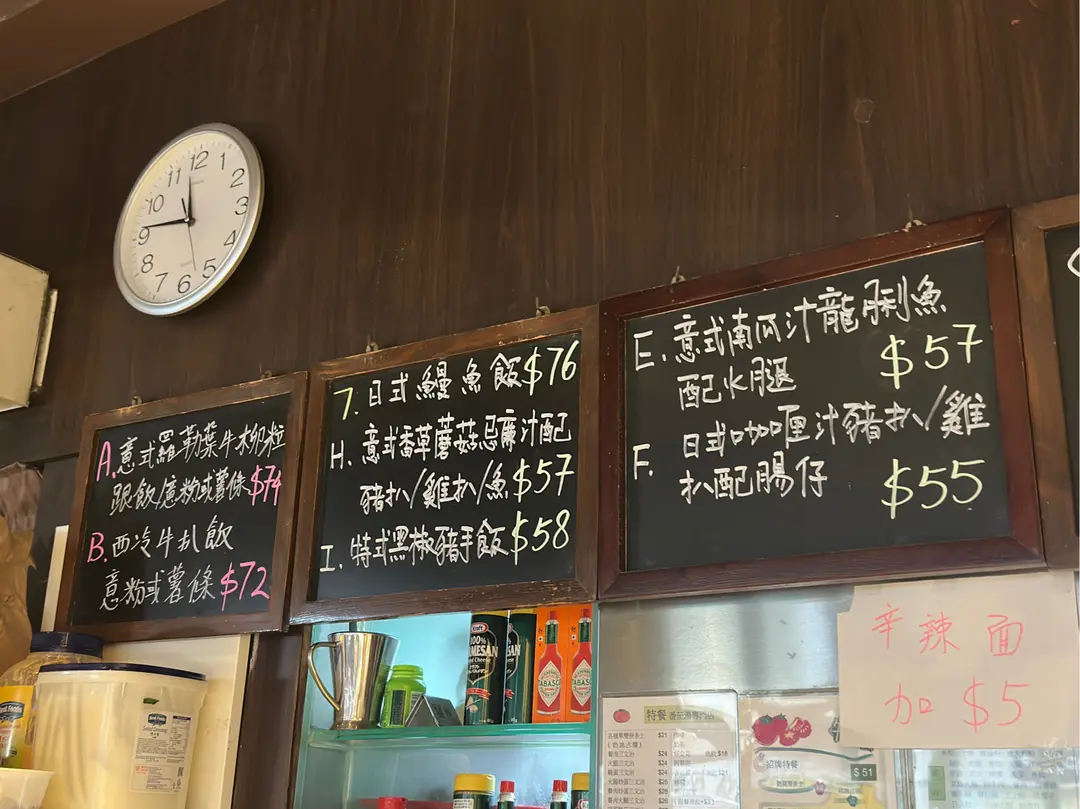 12
11
1
10
2
9
3
8
4
7
5
6
A. 意式羅勒葉牛柳粒
跟飯/意粉或薯條 $74
B. 西冷牛扒飯
意粉或薯條 $72
7. 日式鰻魚飯 $76
H. 意式香草蘑菇忌廉汁配
豬扒/雞扒/魚 $57
I. 特式黑椒豬手飯 $58
E. 意式南瓜汁龍脷魚
配火腿 $57
F. 日式咖喱汁豬扒/雞
扒配腸仔 $55
辛辣面
加 $5
Kraft
100%
PARMESAN
TABASCO
TABASCO
Best Foods
特餐
招牌特餐
$51